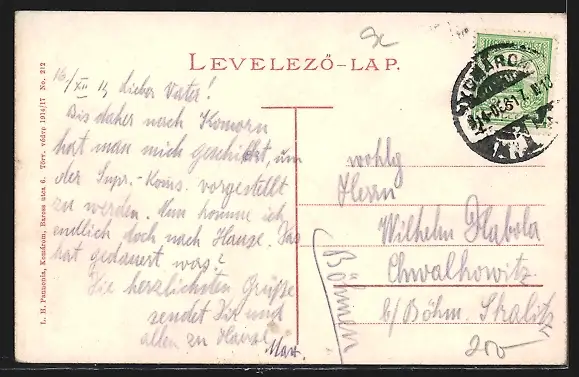 LEVELEZŐ-LAP.
16/XII 14, Lieber Vater!
Bis daher nach Komorn
hat man mich geschickt, um
der Supr.-Koms. vorgestellt
zu werden. Nun komme ich
endlich doch nach Hause. Das
hat gedauert, was?
Die herzlichsten Grüße
sendet Dir und
allen zu Hause
Max.
wohlg
Herrn
Wilhelm Habola
Chwalkowitz
b/Böhm. Skalitz
Böhmen
L. H. Pannonia, Komárom, Baross utca 6. Törv. védep 1914/17 No. 212